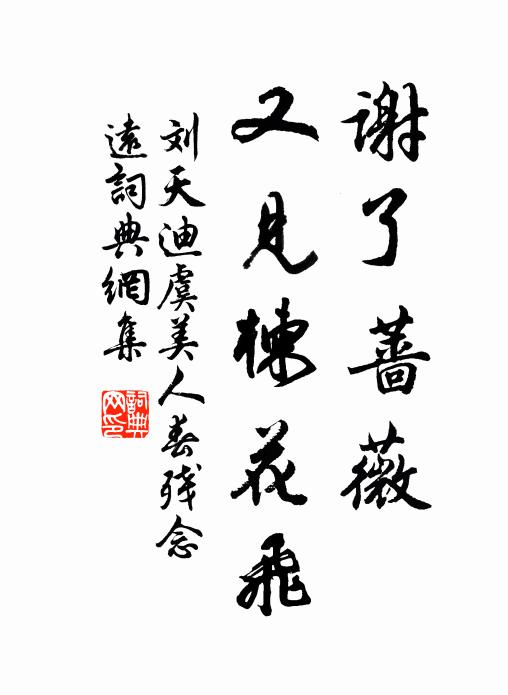 谢了蔷薇
又见楝花飞
刘天迪虞美人春残念
遠詞典網集
詞典网印